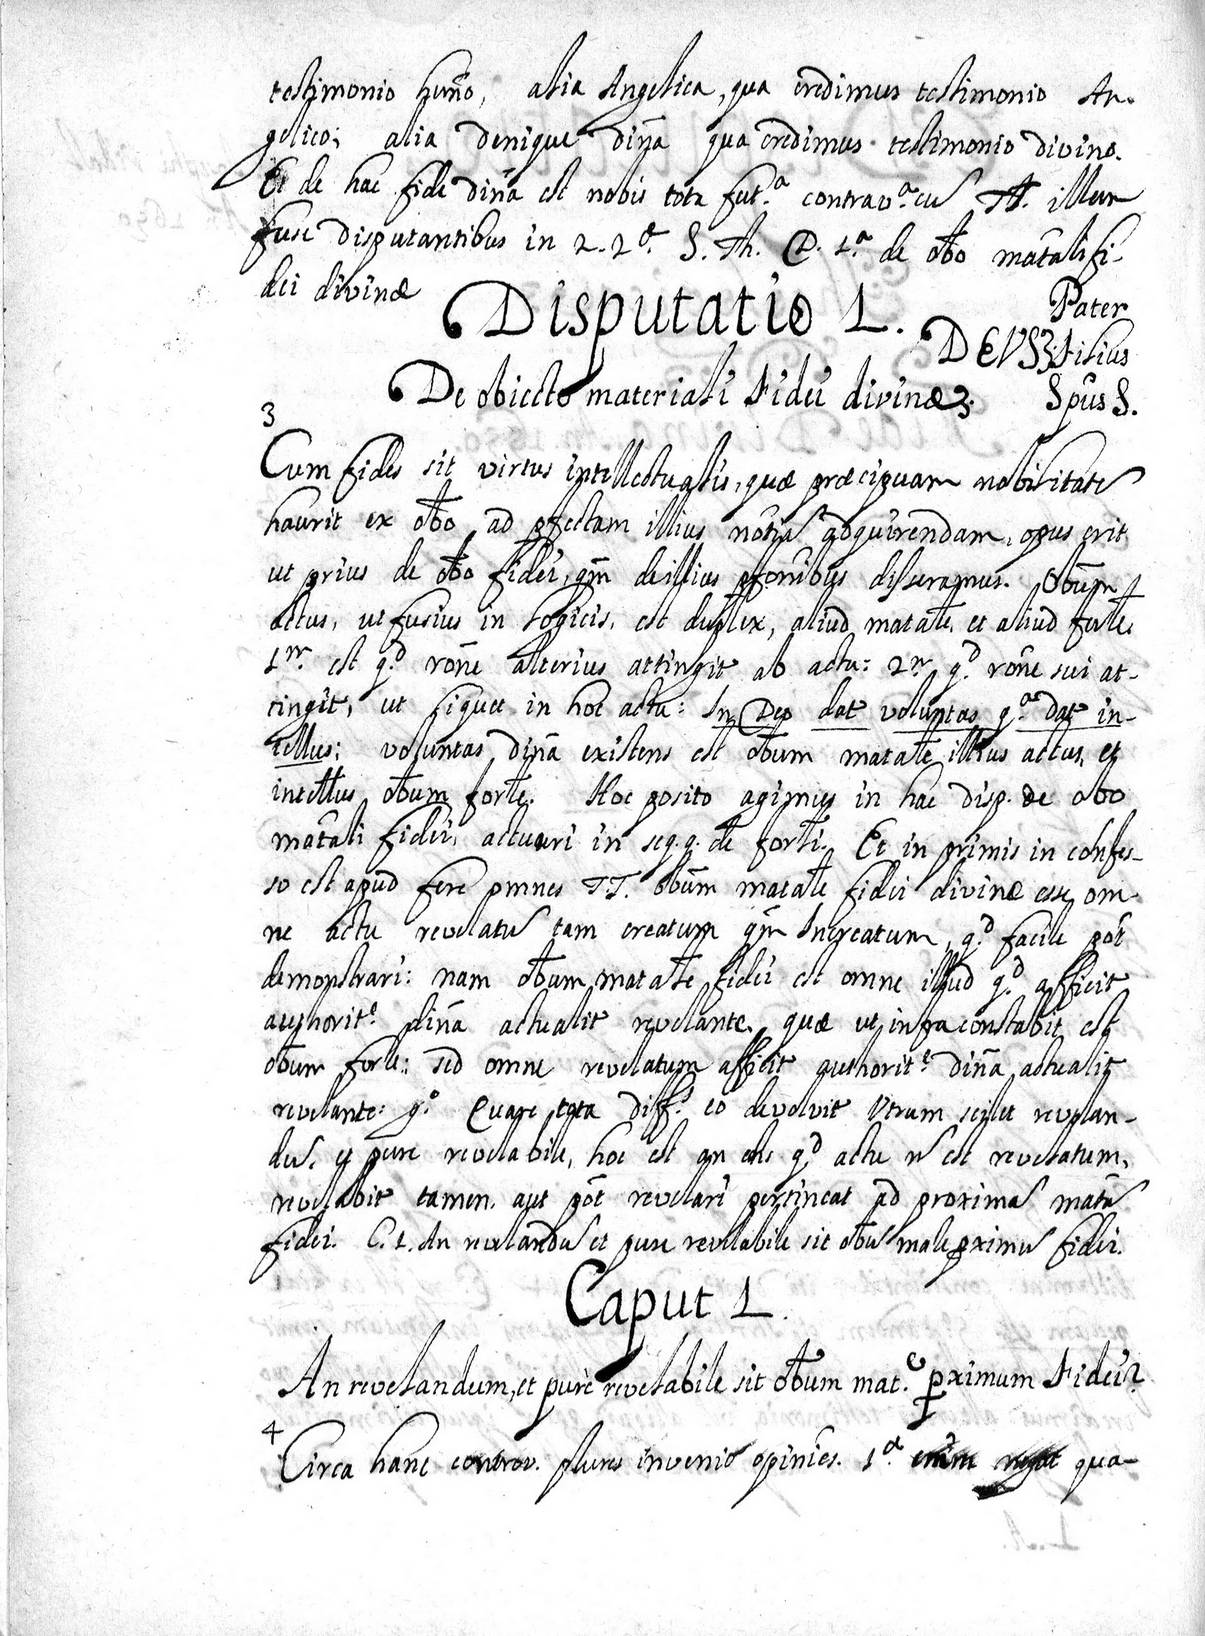 testimonio hum̃o, alia Angelica, qua credimus testimonio An-
gelico; alia denique diña qua credimus testimonio divino.
Et de hac fide diña est nobis tota fut.ª contrav.ª cũ TT. illam
fuse disputantibus in 2.2ᵉ. S. Th. D. 1.ª de obõ matãli fi-
dei divinæ
Disputatio 1.
Pater
DEUS Filius
De obiecto materiali Fidei divinæ
Spũs S.
3
Cum fides sit virtus intellectualis, quæ præcipuam nobilitatẽ
haurit ex obõ ad pfectam illius notiã adquirendam, opus erit
ut prius de obõ fidei, qm̃ de illius pfonibus disseramus. Obũm
actus, ut fusius in Logicis, est duplex, aliud matale, et aliud forle.
1ᵐ. est q.ᵈ rõne alterius attingit ab actu: 2ᵐ q.ᵈ rõne sui at-
tingit, ut liquet in hoc actu: In Deo dat voluntas q.ª dat in-
tellus; voluntas diña existens est obũm matale illius actus, et
intellus obũm forle. Hoc posito agimus in hac disp. de obo
matãli fidei, acturi in seq. q. de forli. Et in primis in confes-
so est apud fere omnes TT. obũm matale fidei divinæ esse om-
ne actu revelatũ tam creatum qm̃ Increatum, q.ᵈ facile põt
demonstrari: nam obũm matale fidei est omne illud q.ᵈ afficit
authorit.ᵉ diña actualit revelante, quæ ut infra constabit est
obũm forle: sed omne revelatum afficit authorit.ᵉ diña actualit
revelante: g.º Quare tota diff.ˢ eo devolvit Utrum scilet revelan-
dũ, et pure revelabile, hoc est an ens q.ᵈ actu ñ est revelatum,
revelabit tamen, aut põt revelari pertineat ad proximã matã
fidei. C. 1. An revelandũ et pure revelabile sit obũ male pximũ fidei.
Caput 1.
An revelandum, et purè revelabile sit obũm mat.ᵉ pximum Fidei?
4
Circa hanc controv. plures invenio opinies. 1.ª qua-